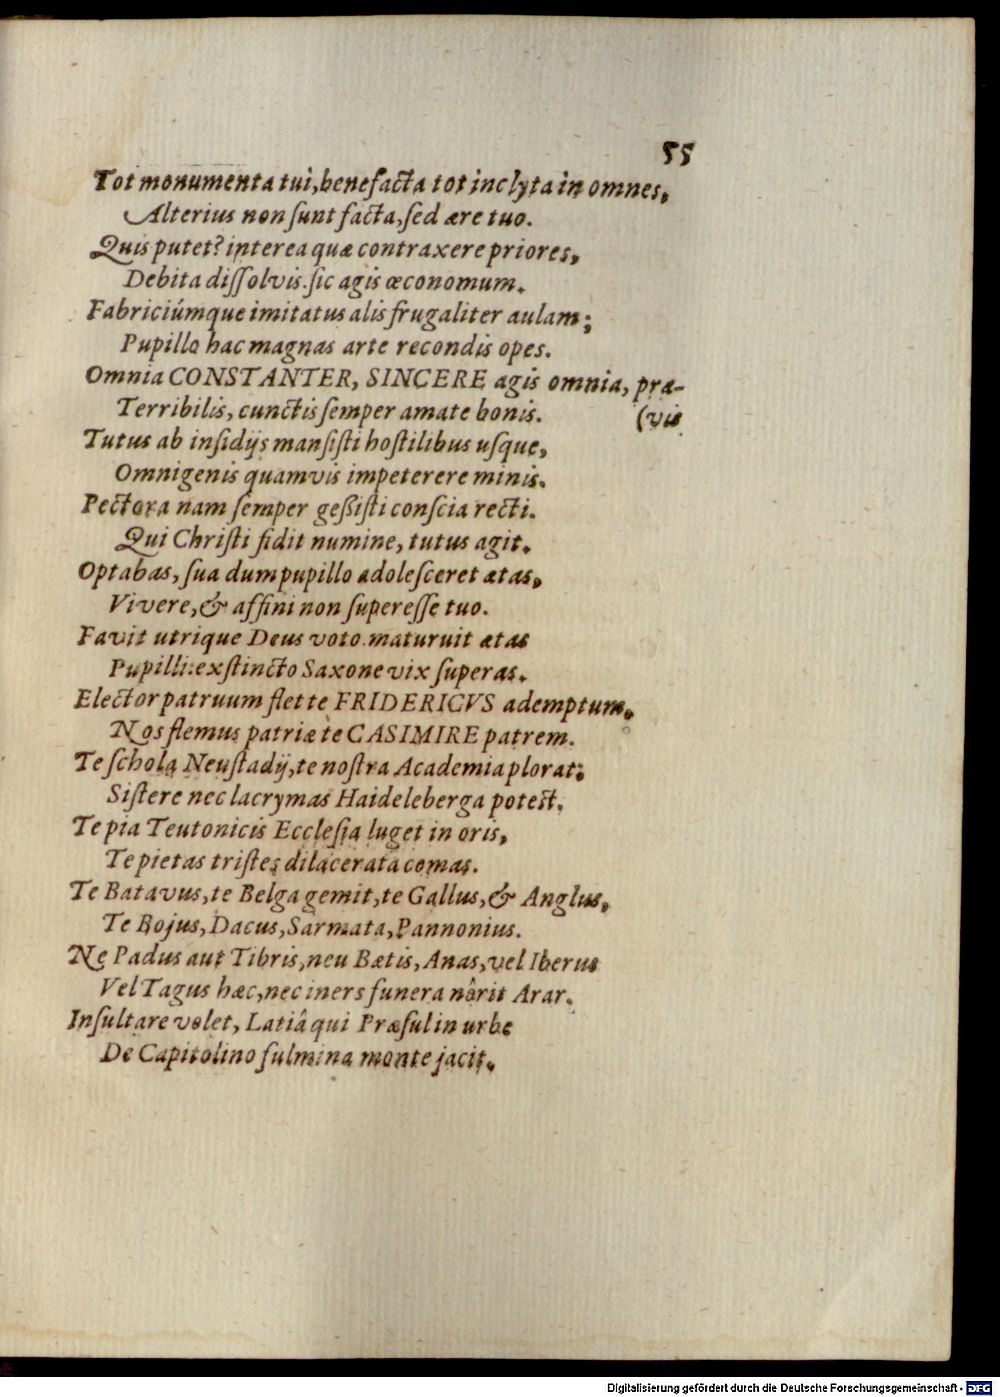 55
Tot monumenta tui, benefacta tot inclyta in omnes,
Alterius non sunt facta, sed ære tuo.
Quis putet? interea quæ contraxere priores,
Debita dissolvis. sic agis œconomum.
Fabriciúmque imitatus alis frugaliter aulam;
Pupillo hac magnas arte recondis opes.
Omnia CONSTANTER, SINCERE agis omnia, præ-
Terribilis, cunctis semper amate bonis. (vis
Tutus ab insidijs mansisti hostilibus usque,
Omnigenis quamvis impeterere minis.
Pectora nam semper gessisti conscia recti.
Qui Christi fidit numine, tutus agit.
Optabas, sua dum pupillo adolesceret ætas,
Vivere, & affini non superesse tuo.
Favit utrique Deus voto. maturuit ætas
Pupilli: exstincto Saxone vix superas.
Elector patruum flet te FRIDERICVS ademptum,
Nos flemus patriæ te CASIMIRE patrem.
Te schola Neustadij, te nostra Academia plorat:
Sistere nec lacrymas Haideleberga potest.
Te pia Teutonicis Ecclesia luget in oris,
Te pietas tristes dilacerata comas.
Te Batavus, te Belga gemit, te Gallus, & Anglus,
Te Bojus, Dacus, Sarmata, Pannonius.
Ne Padus aut Tibris, neu Bætis, Anas, vel Iberus
Vel Tagus hæc, nec iners funera nôrit Arar.
Insultare volet, Latiâ qui Præsul in urbe
De Capitolino fulmina monte jacit.
Digitalisierung gefördert durch die Deutsche Forschungsgemeinschaft - DFG